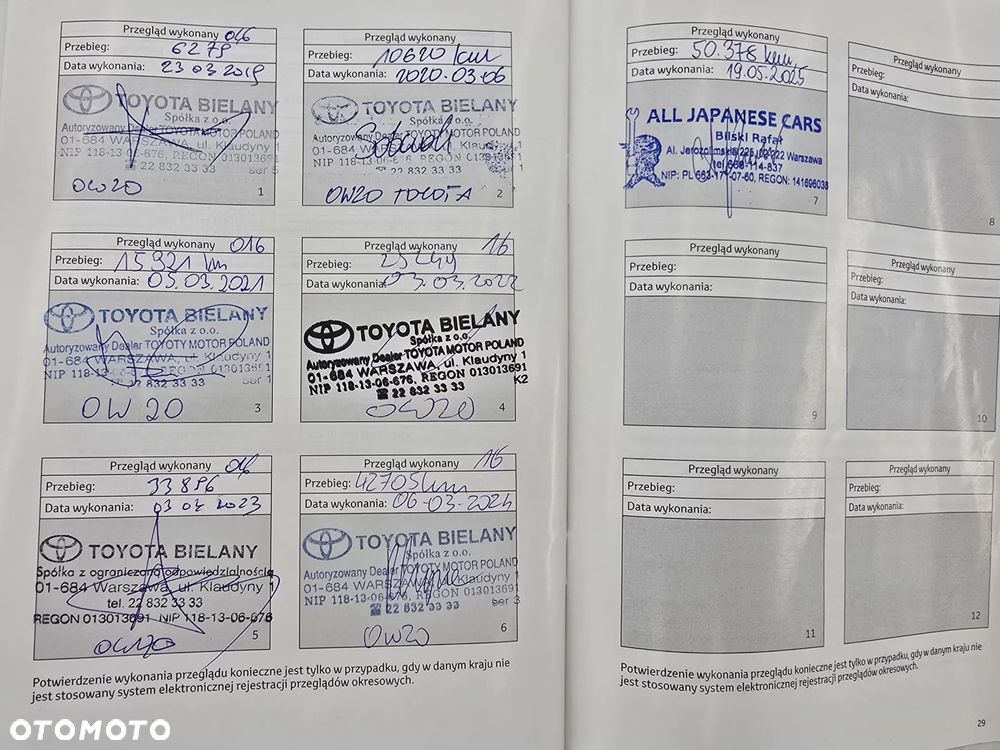 Przegląd wykonany 016
Przebieg: 6279
Data wykonania: 23 03 2019
TOYOTA BIELANY
Spółka z o.o.
Autoryzowany Dealer TOYOTA MOTOR POLAND
01-684 WARSZAWA, ul. Klaudyny 1
NIP 118-13-06-676, REGON 013013691
☎ 22 832 33 33
OW20
1
Przegląd wykonany
Przebieg: 10620 km
Data wykonania: 2020-03-06
TOYOTA BIELANY
Spółka z o.o.
Autoryzowany Dealer TOYOTY MOTOR POLAND
01-684 WARSZAWA, ul. Klaudyny 1
NIP 118-13-06-676, REGON 013013691
☎ 22 832 33 33
OW20 TOYOTA
2
Przegląd wykonany 016
Przebieg: 15921 km
Data wykonania: 05.03.2021
TOYOTA BIELANY
Spółka z o.o.
Autoryzowany Dealer TOYOTY MOTOR POLAND
01-684 WARSZAWA, ul. Klaudyny 1
NIP 118-13-06-676, REGON 013013691
☎ 22 832 33 33
ser 1
OW 20
3
Przegląd wykonany 16
Przebieg:
Data wykonania: 03.03.2022
TOYOTA BIELANY
Spółka z o.o.
Autoryzowany Dealer TOYOTA MOTOR POLAND
01-684 WARSZAWA, ul. Klaudyny 1
NIP 118-13-06-676, REGON 013013691
☎ 22 832 33 33
K2
OW20
4
Przegląd wykonany
Przebieg: 33896
Data wykonania: 2023
TOYOTA BIELANY
Spółka z ograniczoną odpowiedzialnością
01-684 Warszawa, ul. Klaudyny 1
tel. 22 832 33 33
REGON 013013691 NIP 118-13-06-676
OW20
5
Przegląd wykonany 16
Przebieg: 42705 km
Data wykonania: 06-03-2024
TOYOTA BIELANY
Spółka z o.o.
Autoryzowany Dealer TOYOTY MOTOR POLAND
01-684 WARSZAWA, ul. Klaudyny 1
NIP 118-13-06-676, REGON 013013691
☎ 22 832 33 33
ser 3
OW20
6
Potwierdzenie wykonania przeglądu konieczne jest tylko w przypadku, gdy w danym kraju nie
jest stosowany system elektronicznej rejestracji przeglądów okresowych.
Przegląd wykonany
Przebieg: 50.378 km
Data wykonania: 19.05.2025
ALL JAPANESE CARS
Bilski Rafał
Al. Jerozolimskie 225, 02-222 Warszawa
tel. 668-114-837
NIP: PL 662-171-07-60, REGON: 141696038
7
Przegląd wykonany
Przebieg:
Data wykonania:
8
Przegląd wykonany
Przebieg:
Data wykonania:
9
Przegląd wykonany
Przebieg:
Data wykonania:
10
Przegląd wykonany
Przebieg:
Data wykonania:
11
Przegląd wykonany
Przebieg:
Data wykonania:
12
Potwierdzenie wykonania przeglądu konieczne jest tylko w przypadku, gdy w danym kraju nie
jest stosowany system elektronicznej rejestracji przeglądów okresowych.
29
OTOMOTO